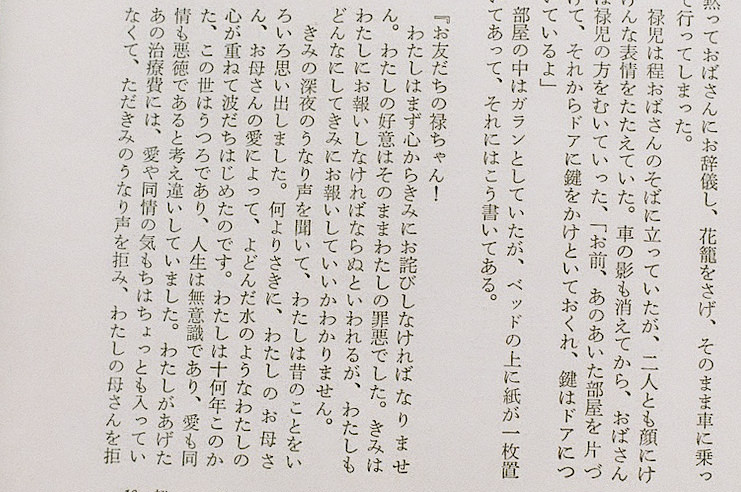 黙っておばさんにお辞儀し、花籠をさげ、そのまま車に乗っ
て行ってしまった。
禄児は程おばさんのそばに立っていたが、二人とも顔にけ
げんな表情をたたえていた。車の影も消えてから、おばさん
は禄児の方をむいていった、「お前、あのあいた部屋を片づ
けて、それからドアに鍵をかけといておくれ、鍵はドアにつ
いているよ」
部屋の中はガランとしていたが、ベッドの上に紙が一枚置
いてあって、それにはこう書いてある。
『お友だちの禄ちゃん！
わたしはまず心からきみにお詫びしなければなりませ
ん。わたしの好意はそのままわたしの罪悪でした。きみは
わたしにお報いしなければならぬといわれるが、わたしも
どんなにしてきみにお報いしていいかわかりません。
きみの深夜のうなり声を聞いて、わたしは昔のことをい
ろいろ思い出しました。何よりさきに、わたしのお母さ
ん、お母さんの愛によって、よどんだ水のようなわたしの
心が重ねて波だちはじめたのです。わたしは十何年このか
た、この世はうつろであり、人生は無意識であり、愛も同
情も悪徳であると考え違いしていました。わたしがあげた
あの治療費には、愛や同情の気もちはちょっとも入ってい
なくて、ただきみのうなり声を拒み、わたしの母さんを拒